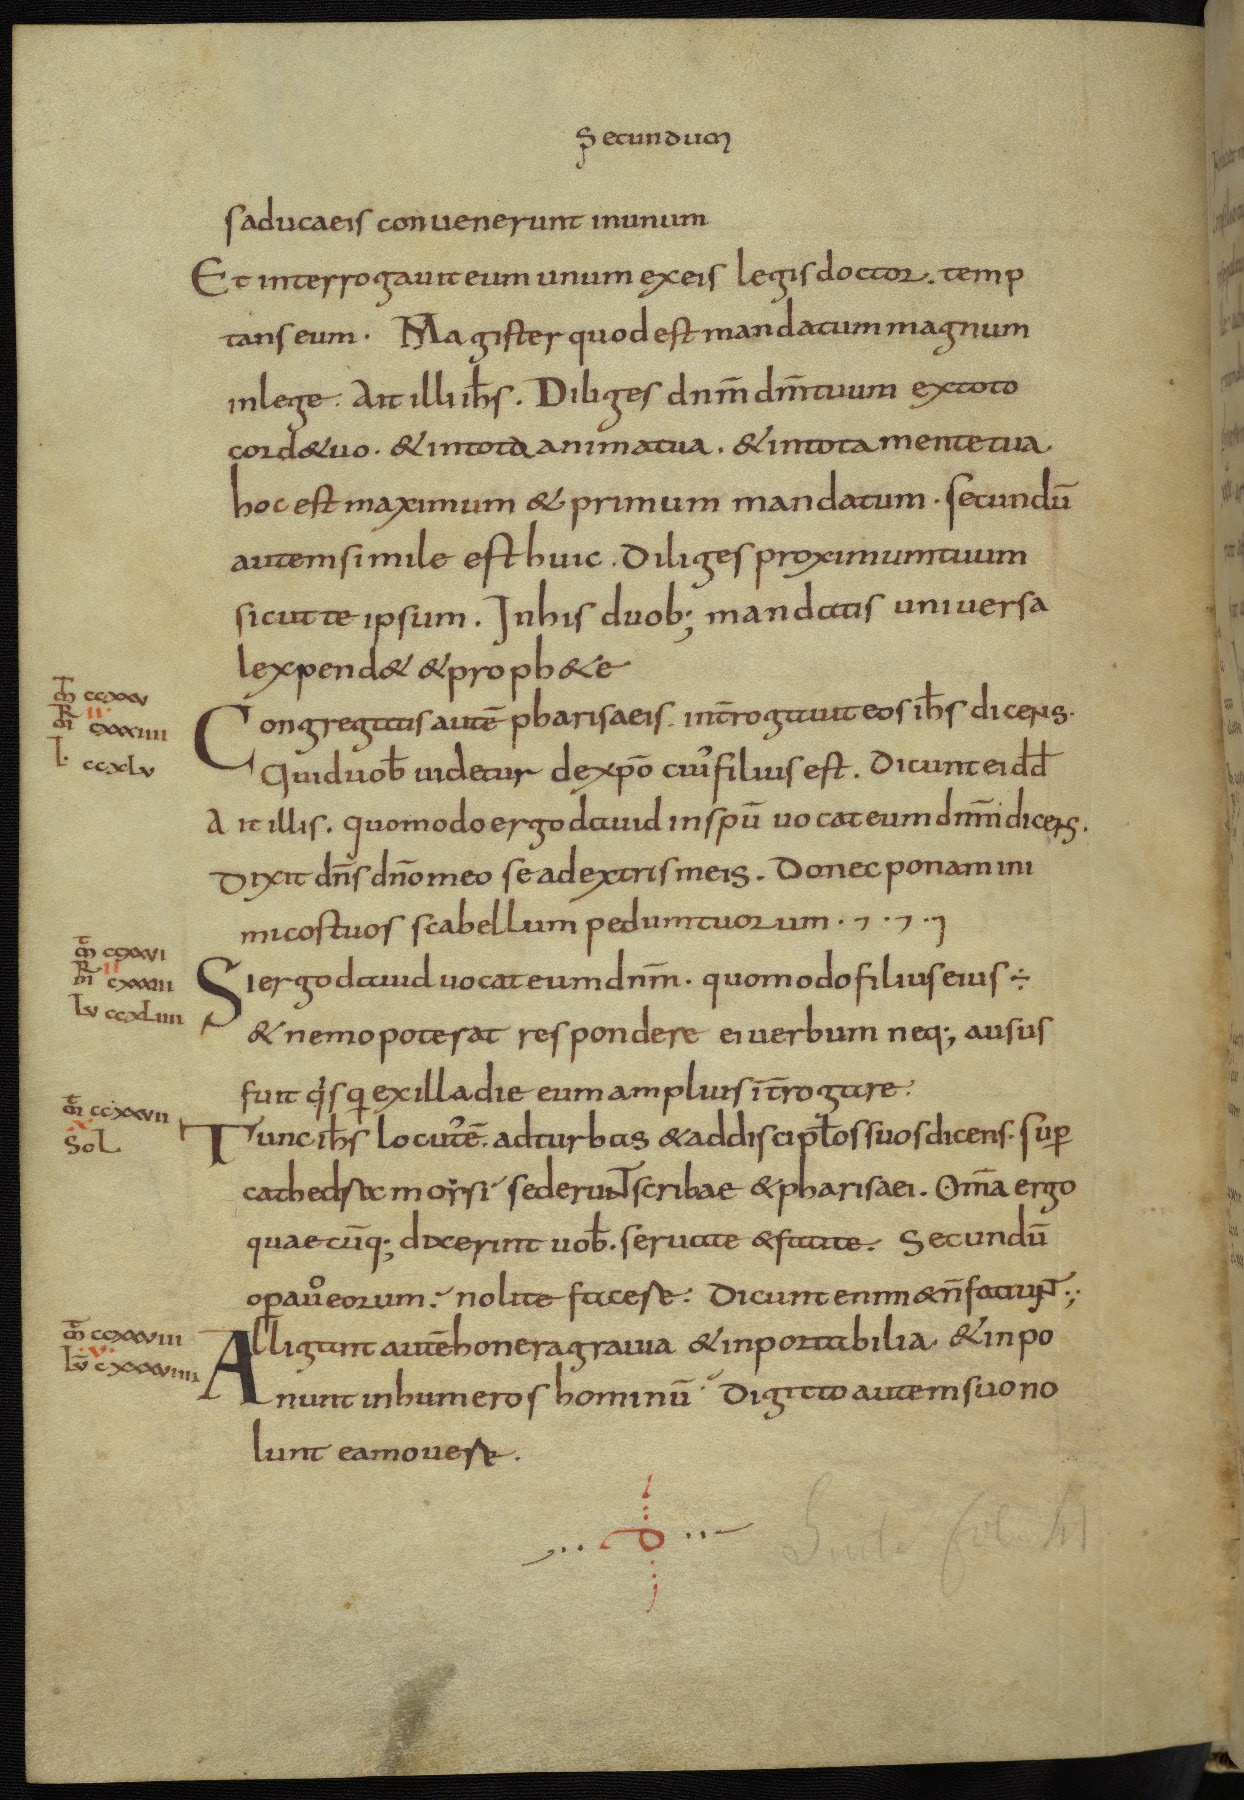 Secundum
saducaeis conuenerunt inunum
Et interrogauit eum unum exeis legisdoctor. temp
tans eum. Magister quod est mandatum magnum
inlege. Ait illi ihs. Diliges dnm̄ dm̄tuum extoto
cord&uo. &intota animatua. &intota mentetua.
hoc est maximum & primum mandatum. secundū
autemsimile est huic. Diliges proximumtuum
sicut te ipsum. Inhis duob; mandatis uniuersa
lexpend& &proph&e
Congregatis autē pharisaeis. int̄rogauit eos ih̄s dicens.
Quid uob̄ uidetur dexp̄o cui᾽filius est. Dicunt ei dd̄
Ait illis. quomodo ergo dauid inspū uocat eum dnm̄ dicens.
Dixit dn̄s dn̄o meo se adextris meis. Donec ponam ini
micostuos scabellum pedumtuorum
Siergo dauid uocat eum dnm̄. quomodo filius eius
& nemo poterat respondere ei uerbum neq; ausus
fuit qͥsq exilladie eum amplius īt̄rogare.
Tunc ih̄s locut᾽ē. adturbas &addiscipłos suos dicens. suꝑ
cathedra morsi sederunt scribae &pharisaei. Om̄a ergo
quaecūq; dixerint uob̄. seruate &facite. Secundū
opa uͦ eorum. nolite facere. Dicunt enim &n̄ faciunt.;
Alligant autē honera grauia &inportabilia. &inpo
nunt inhumeros hominū Digitto autem suo no
lunt ea mouere.
m̄ ccxxv
mr̄ cxxxiiii
ii
l. ccxlv
m̄ ccxxvi
mr̄ cxxxiii
ii
Lv ccxliiii
m̄ ccxxvii
x
Sol
m̄ ccxxviii
v
Lv̄ cxxxviiii